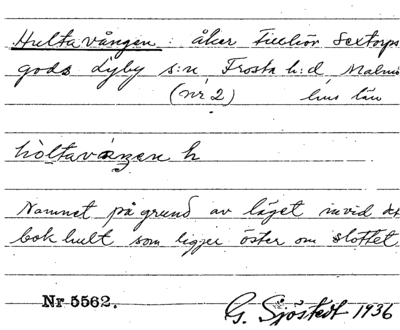 Hultavången: åker Tillhör Sextorps
gods Lyby s:n Frosta h:d Malmö
(nr 2) hus län
hòltavàngen h
Namnet på grund av läget invid det
bok hult som ligger öster om slottet
Nr 5562.
G. Sjöstedt 1936